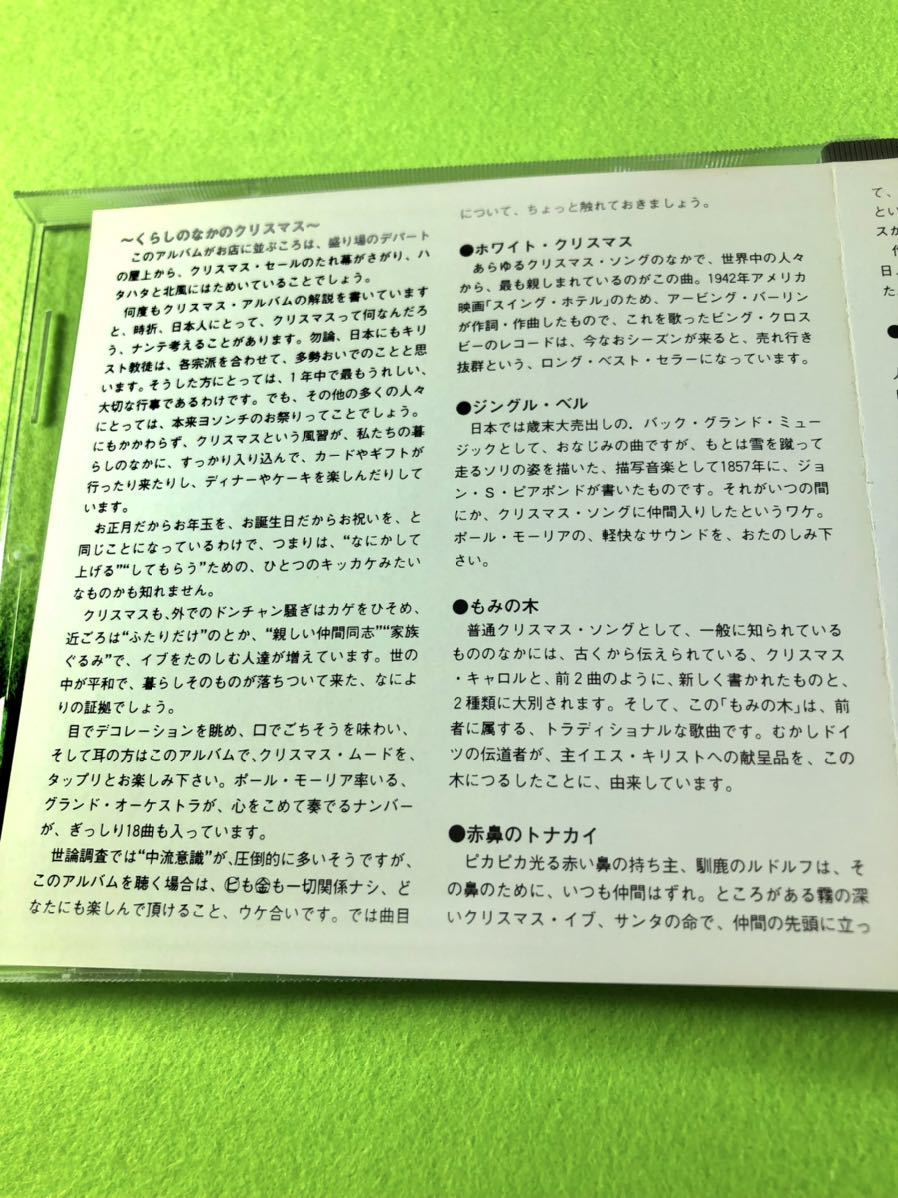 ～くらしのなかのクリスマス～
このアルバムがお店に並ぶころは、盛り場のデパート
の屋上から、クリスマス・セールのたれ幕がさがり、ハ
タハタと北風にはためいていることでしょう。
何度もクリスマス・アルバムの解説を書いています
と、時折、日本人にとって、クリスマスって何なんだろ
う、ナンテ考えることがあります。勿論、日本にもキリ
スト教徒は、各宗派を合わせて、多勢おいでのことと思
います。そうした方にとっては、1年中で最もうれしい、
大切な行事であるわけです。でも、その他の多くの人々
にとっては、本来ヨソンチのお祭りってことでしょう。
にもかかわらず、クリスマスという風習が、私たちの暮
らしのなかに、すっかり入り込んで、カードやギフトが
行ったり来たりし、ディナーやケーキを楽しんだりして
います。
お正月だからお年玉を、お誕生日だからお祝いを、と
同じことになっているわけで、つまりは、“なにかして
上げる”“してもらう”ための、ひとつのキッカケみたい
なものかも知れません。
クリスマスも、外でのドンチャン騒ぎはカゲをひそめ、
近ごろは“ふたりだけ”のとか、“親しい仲間同志”“家族
ぐるみ”で、イブをたのしむ人達が増えています。世の
中が平和で、暮らしそのものが落ちついて来た、なによ
りの証拠でしょう。
目でデコレーションを眺め、口でごちそうを味わい、
そして耳の方はこのアルバムで、クリスマス・ムードを、
タップリとお楽しみ下さい。ポール・モーリア率いる、
グランド・オーケストラが、心をこめて奏でるナンバー
が、ぎっしり18曲も入っています。
世論調査では“中流意識”が、圧倒的に多いそうですが、
このアルバムを聴く場合は、㋪も㊎も一切関係ナシ、ど
なたにも楽しんで頂けること、ウケ合いです。では曲目
について、ちょっと触れておきましょう。
●ホワイト・クリスマス
あらゆるクリスマス・ソングのなかで、世界中の人々
から、最も親しまれているのがこの曲。1942年アメリカ
映画「スイング・ホテル」のため、アービング・バーリン
が作詞・作曲したもので、これを歌ったビング・クロス
ビーのレコードは、今なおシーズンが来ると、売れ行き
抜群という、ロング・ベスト・セラーになっています。
●ジングル・ベル
日本では歳末大売出しの．バック・グランド・ミュー
ジックとして、おなじみの曲ですが、もとは雪を蹴って
走るソリの姿を描いた、描写音楽として1857年に、ジョ
ン・S・ピアポンドが書いたものです。それがいつの間
にか、クリスマス・ソングに仲間入りしたというワケ。
ポール・モーリアの、軽快なサウンドを、おたのしみ下
さい。
●もみの木
普通クリスマス・ソングとして、一般に知られている
もののなかには、古くから伝えられている、クリスマス
・キャロルと、前2曲のように、新しく書かれたものと、
2種類に大別されます。そして、この「もみの木」は、前
者に属する、トラディショナルな歌曲です。むかしドイ
ツの伝道者が、主イエス・キリストへの献呈品を、この
木につるしたことに、由来しています。
●赤鼻のトナカイ
ピカピカ光る赤い鼻の持ち主、馴鹿のルドルフは、そ
の鼻のために、いつも仲間はずれ。ところがある霧の深
いクリスマス・イブ、サンタの命で、仲間の先頭に立っ
て、
とい
スが
日、
た